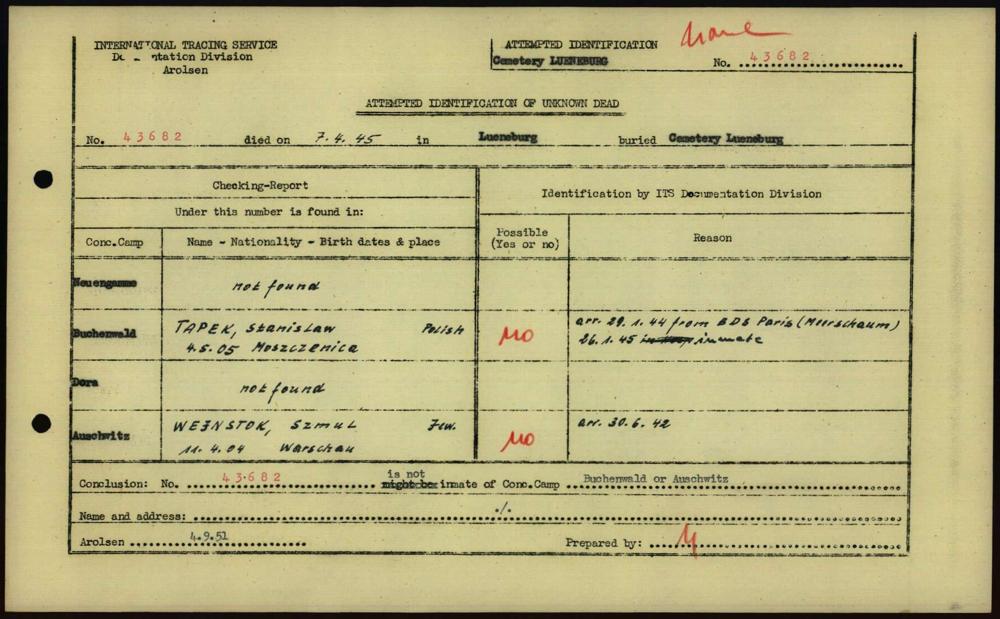 INTERNATIONAL TRACING SERVICE
Documentation Division
Arolsen
ATTEMPTED IDENTIFICATION
Cemetery LUENEBURG
No. 43682
ATTEMPTED IDENTIFICATION OF UNKNOWN DEAD
No. 43682 died on 7.4.45 in Lueneburg buried Cemetery Lueneburg
Checking-Report
Under this number is found in:
Conc.Camp Name - Nationality - Birth dates & place
Identification by ITS Documentation Division
Possible
(Yes or no)
Reason
Neuengamme not found
Buchenwald TAPEK, Stanislaw Polish
4.5.05 Moszczenica
no
arr. 29.1.44 from BDS Paris (Meerschaum)
26.1.45 inmate
Dora not found
Auschwitz WEJNSTOK, Szmul Jew.
11.4.04 Warschau
no
arr. 30.6.42
is not
Conclusion: No. 43682 might be inmate of Conc.Camp Buchenwald or Auschwitz
Name and address: ./.
Arolsen 4.9.51 Prepared by: